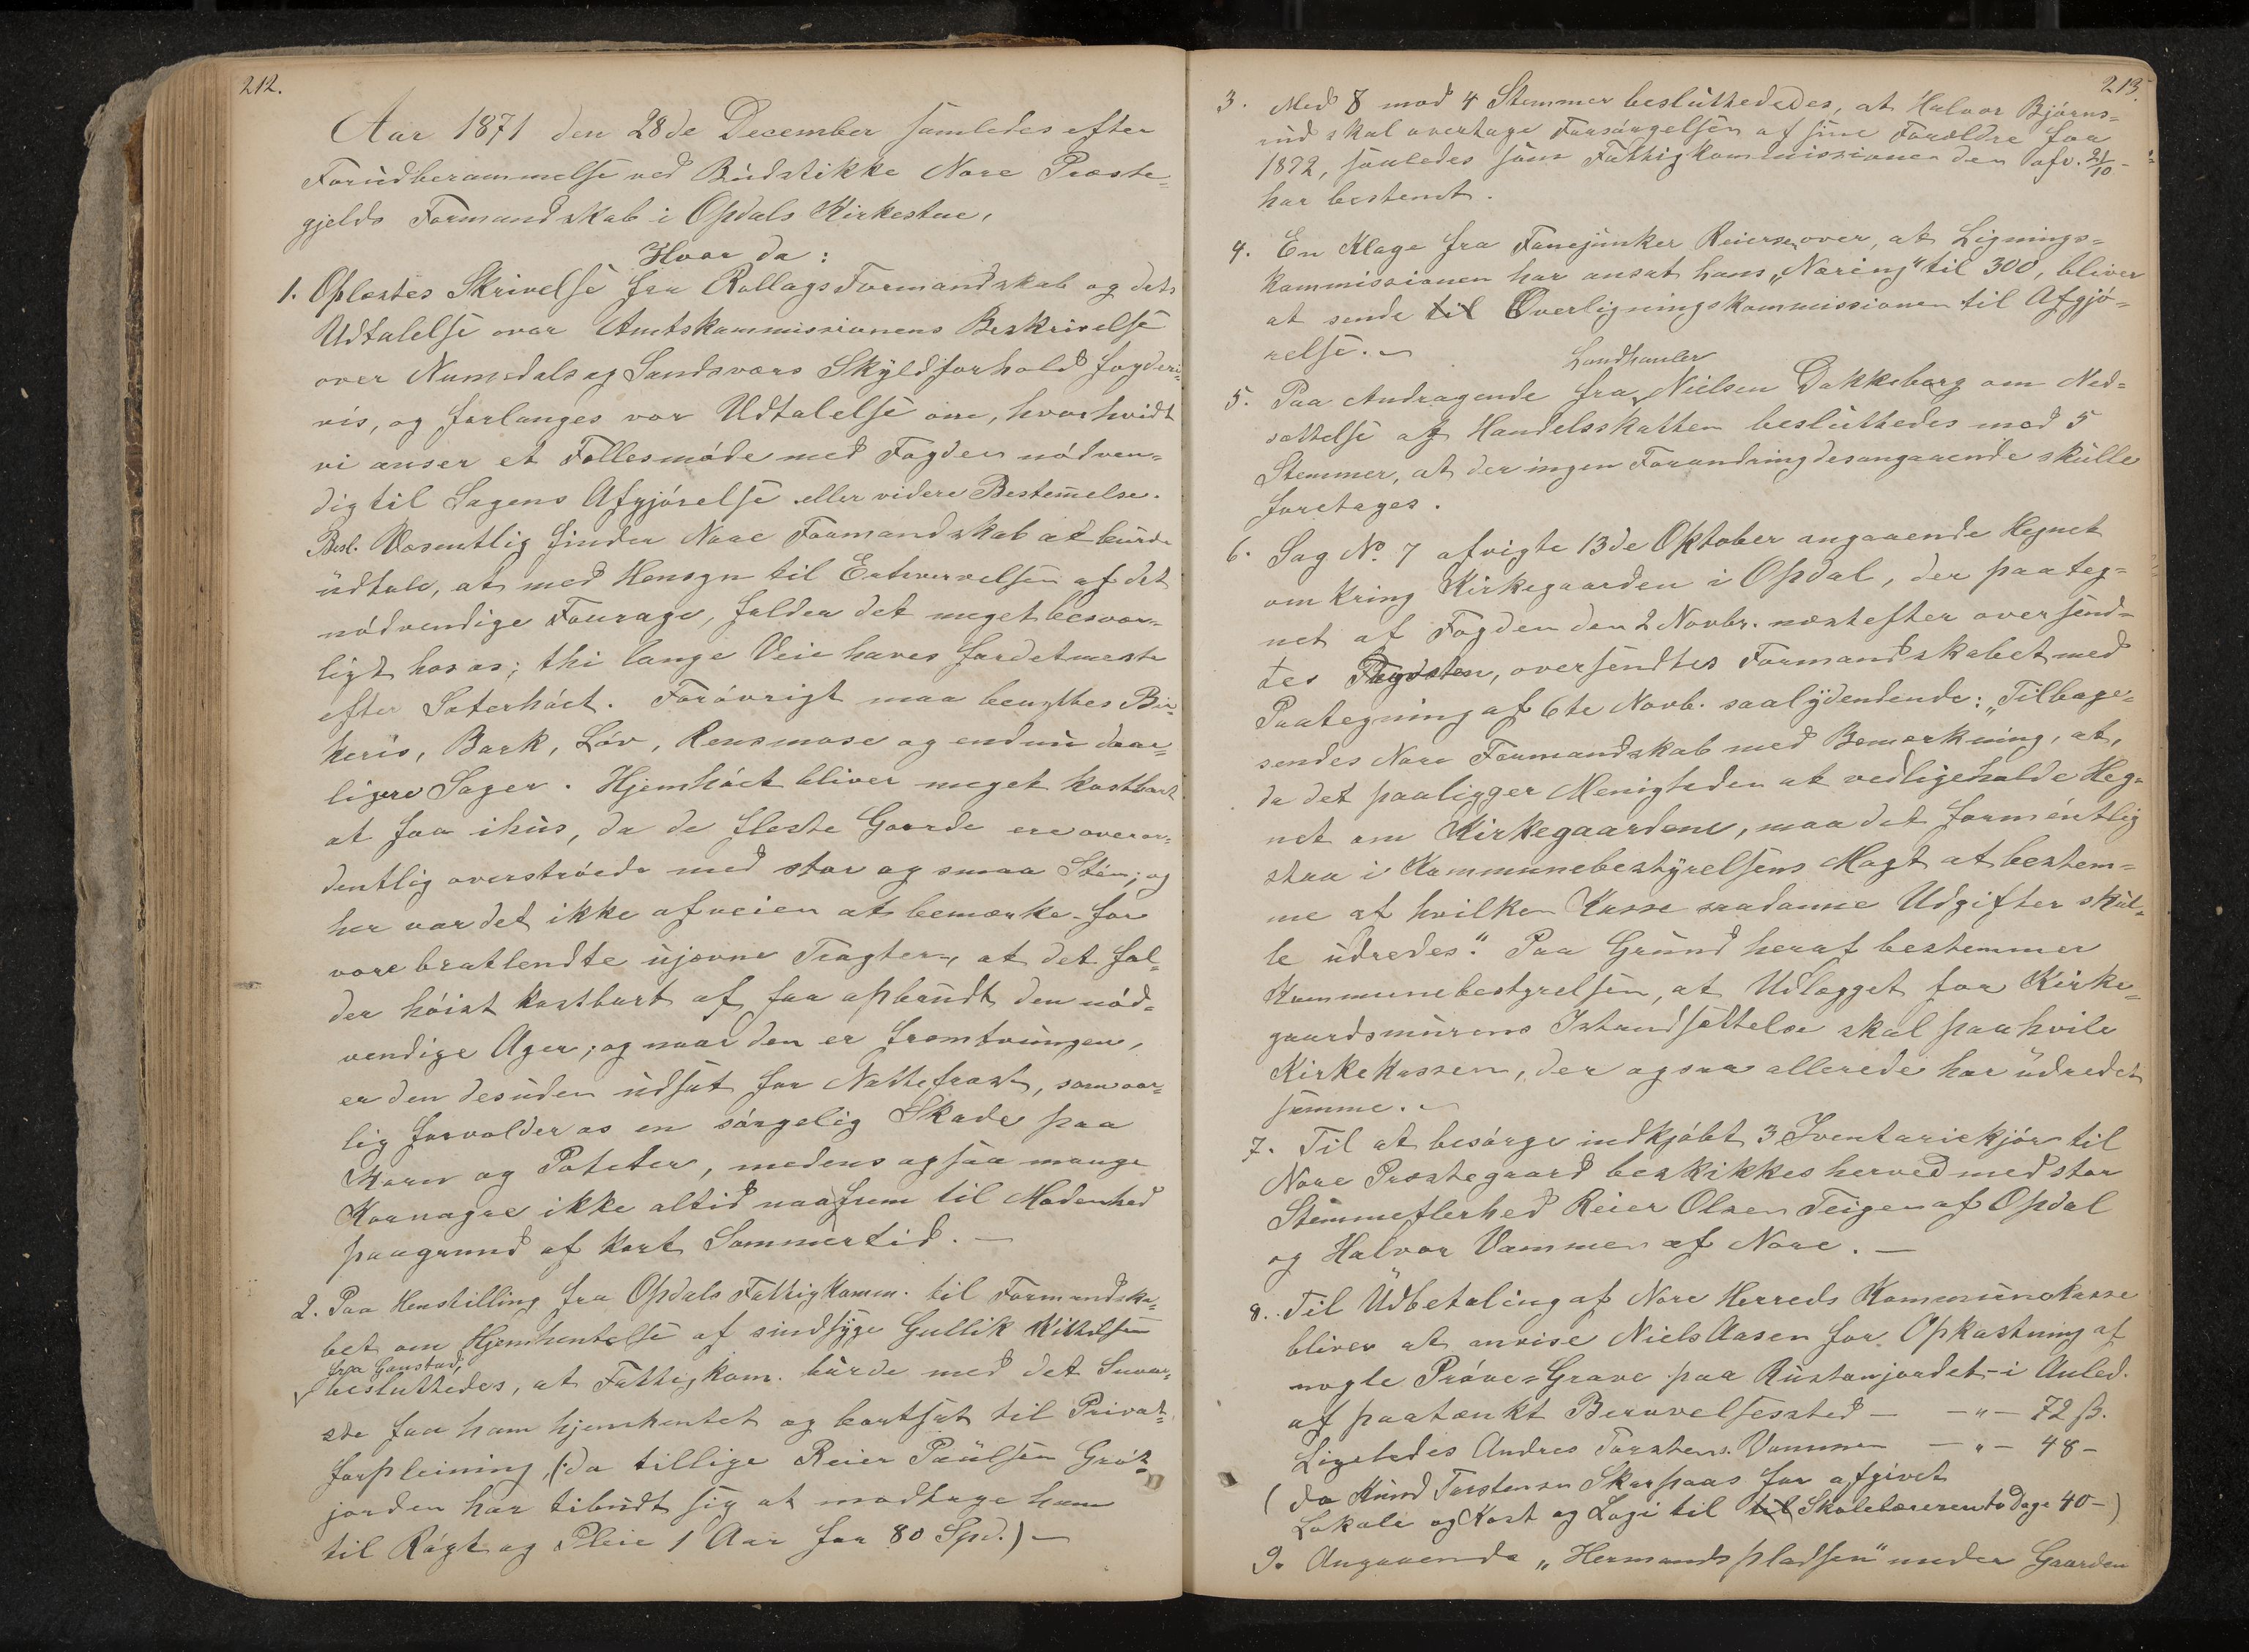 212.
Aar 1871 den 28de December samledes efter
Forudberammelse ved Budstikke Nore Præste-
gjelds Formandskab i Opdals Kirkestue,
Hvor da:
1. Oplæstes Skrivelse fra Rollags Formandskab og dets
Udtalelse over Amtskommissionens Beskrivelse
over Numedals og Sandsværs Skyldforhold fogderi-
vis, og forlanges vor Udtalelse om, hvorhvidt
vi anser et Fællesmøde med Fogden nødven-
dig til Sagens Afgjørelse eller videre Bestemelse.
Besl. Væsentlig finder Nore Formandskab at burde
udtale, at med Hensyn til Erhvervelsen af det
nødvendige Fourage, falder det meget besvær-
ligt hos os; thi lange Veie haves for det meste
efter Sæterhøet. Forøvrigt maa benyttes Bir-
keris, Bark, Løv, Rensmose og endnu daar-
ligere Sager. Hjemhøet bliver meget kostbart
at faa ihus, da de fleste Gaarde ere overor-
dentlig overstrøede med stor og smaa Sten; og
her var det ikke afveien at bemærke for
vore bratlendte ujævne Tragter, at det fal-
der høist kostbart af faa opbrudt den nød-
vendige Ager; og naar den er fremtvungen,
er den desuden udsat for Nattefrost, som aar-
lig forvolder os en sørgelig Skade paa
Korn og Poteter, medens ogsaa mange
Kornagre ikke altid naa frem til Modenhed
paagrund af kort Sommertid. —
2. Paa Henstilling fra Opdals Fattigkomm. til Formandska-
bet om Hjemhentelse af sindsyge Gullik Kittilsen
fra Gaustad,
besluttedes, at Fattigkom. burde med det Snar-
ste faa ham hjemhentet og bortsat til Privat-
forpleining, (da tillige Reier Paulsen Grøt-
jorden har tibudt sig at modtage ham
til Røgt og Pleie 1 Aar for 80 Spd.) —
213.
3. Med 8 mod 4 Stemmer besluttededes, at Halvor Bjørns-
rud skal overtage Forsørgelsen af sine Forældre for
1872, saaledes som Fattigkommissionen den afv. 21/10
har bestemt.
4. En Klage fra Fanejunker Reiersen over, at Lignings-
kommissionen har ansat hans "Næring" til 300, bliver
at sende til Overligningskommissionen til Afgjø-
relse.
Landhanler
5. Paa Andragende fra Nielsen Dokkeberg om Ned-
sættelse af Handelsskatten besluttedes med 5
Stemmer, at der ingen Forandring desangaaende skulle
foretages.
6. Sag No. 7 afvigte 13de Oktober angaaende Hegnet
omkring Kirkegaarden i Opdal, der paateg-
net af Fogden den 2 Novbr. næstefter oversend-
tes Provsten, oversendtes Formandskabet med
Paategning af 6te Novb. saalydendende: "Tilbage-
sendes Nore Formandskab med Bemærkning, at,
da det paaligger Menigheden at vedligeholde Heg-
net om Kirkegaardene, maa det formentlig
staa i Kommunebestyrelsens Magt at bestem-
me af hvilken Kasse saadanne Udgifter skul-
le udredes." Paa Grund heraf bestemmer
Kommunebestyrelsen, at Udlægget for Kirke-
gaardsmurens Istandsættelse skal paahvile
Kirkekassen, der ogsaa allerede har udredet
samme.
7. Til at besørge indkjøbt 3 Inventariekjør til
Nore Præstegaard beskikkes herved med stor
Stemmeflerhed Reier Olsen Teigen af Opdal
og Halvor Vammen af Nore. —
8. Til Udbetaling af Nore Herreds Kommunekasse
bliver at anvise Niels Aasen for Opkastning af
nogle Prøve-Grave paa Rustanjordet i Anled.
af paatænkt Beravelsessted — —"— 72 ß.
Ligeledes Andres Torstens. Vammen —"— 48 –
( do Knud Torstensen Skarpaas for afgivet
Lokale og Kost og Logi til til Skolelæreren to Dage 40 – )
9. Angaaende "Hermandspladsen" under Gaarden